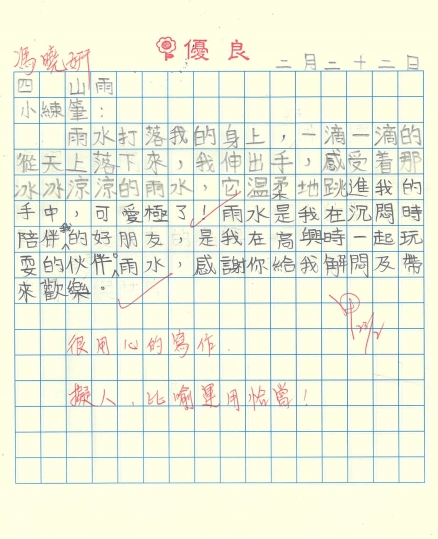 優良
馮曉妍 二月二十二日
四 山雨
小練筆：
雨水打落我的身上，一滴一滴的
從天上落下來，我伸出手，感受着那
冰冰涼涼的雨水，它溫柔地跳進我的
手中，可愛極了！雨水是我在沉悶時
陪伴我的好朋友，是我在高興時一起玩
耍的伙伴。雨水，感謝你給我解悶及帶
來歡樂。
甲 22/2
很用心的寫作．
擬人、比喻運用恰當！